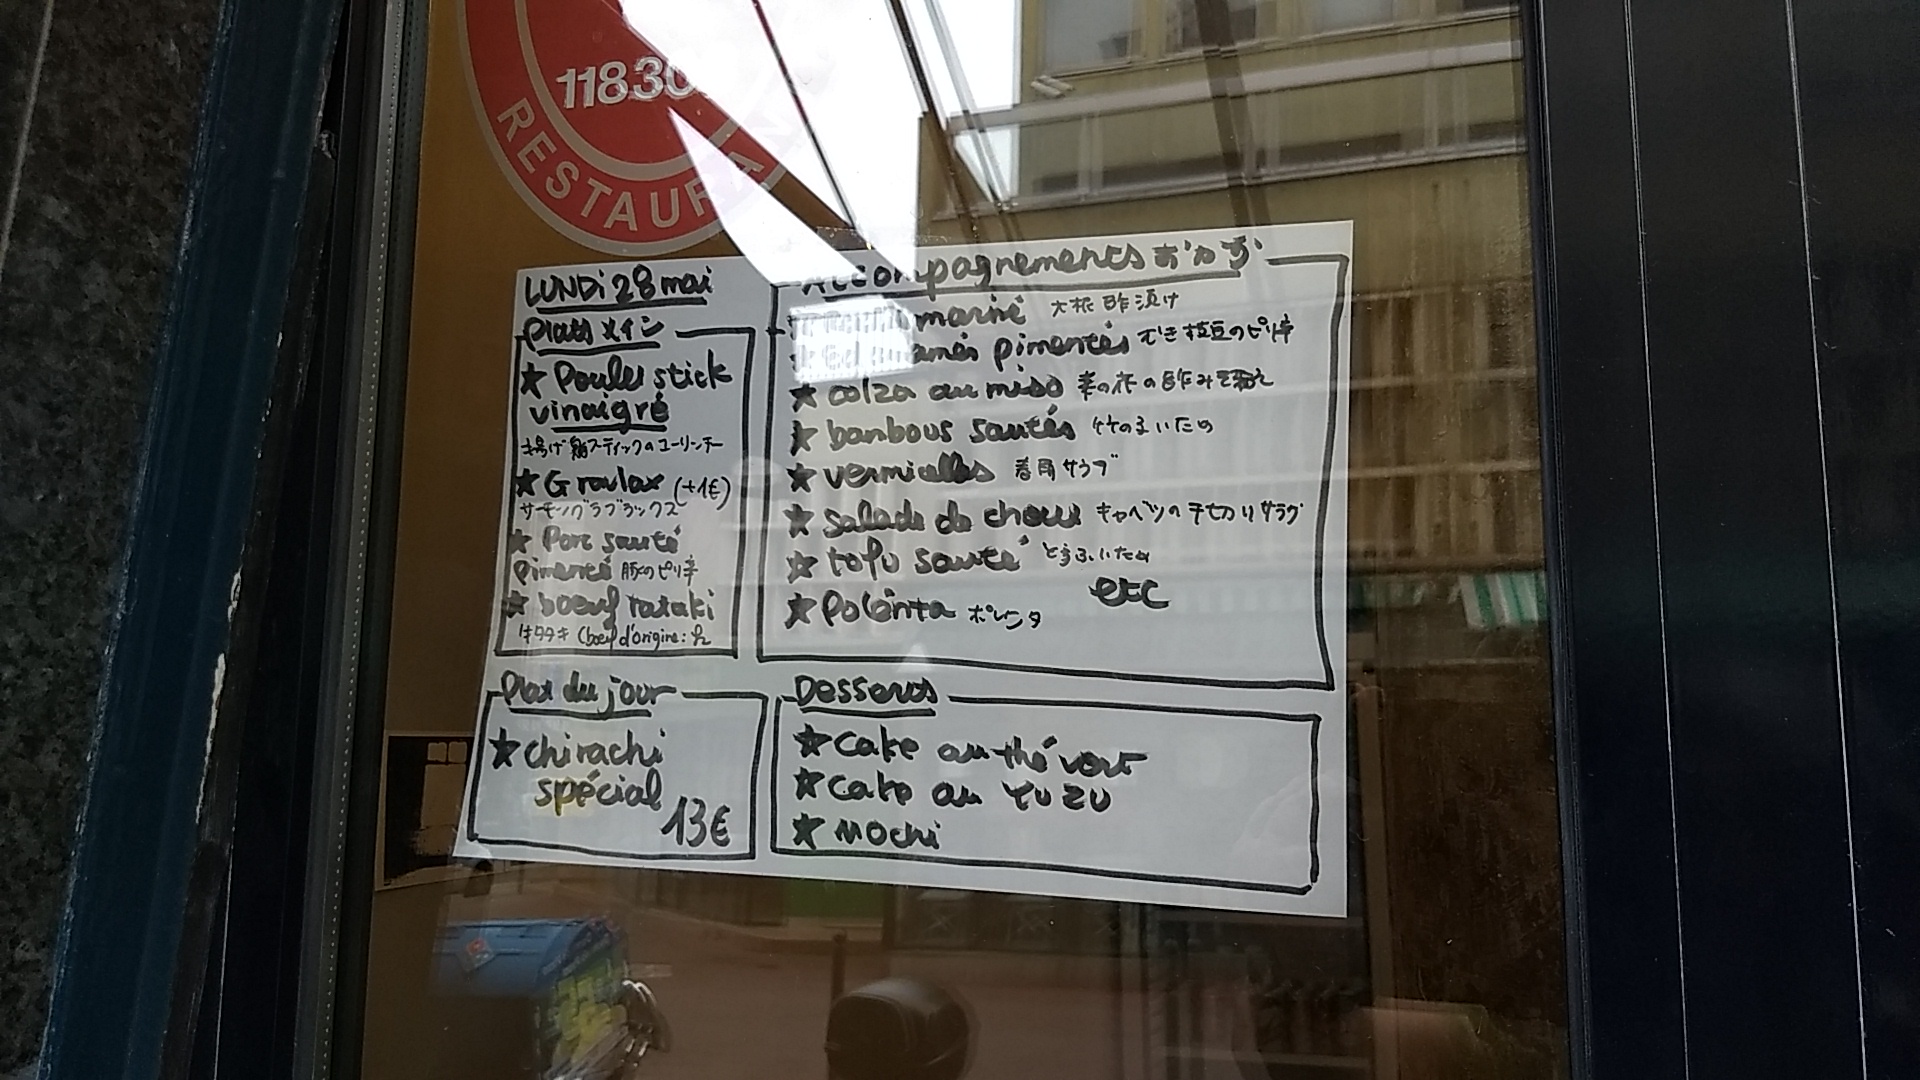 11830
RESTAURANT
LUNDi 28 mai
Plats メイン
★ Poulet stick
vinaigré
揚げ鶏スティックのユーリンチー
★ Gravlax (+1€)
サーモングラブラックス
★ Porc sauté
pimenté 豚のピリ辛
★ boeuf tataki
牛タタキ (boeuf d'origine:
Plat du jour
★ chirachi
spécial
13€
Accompagnements おかず
mariné 大根酢漬け
pimentés むき枝豆のピリ辛
★ colza au miso 菜の花の酢みそ和え
★ bambous sautés 竹のこいため
★ vermicelles 春雨サラダ
★ salade de choux キャベツの千切りサラダ
★ tofu sauté とうふいため
etc
★ Polenta ポレンタ
Desserts
★ cake au thé vert
★ cake au YUZU
★ mochi